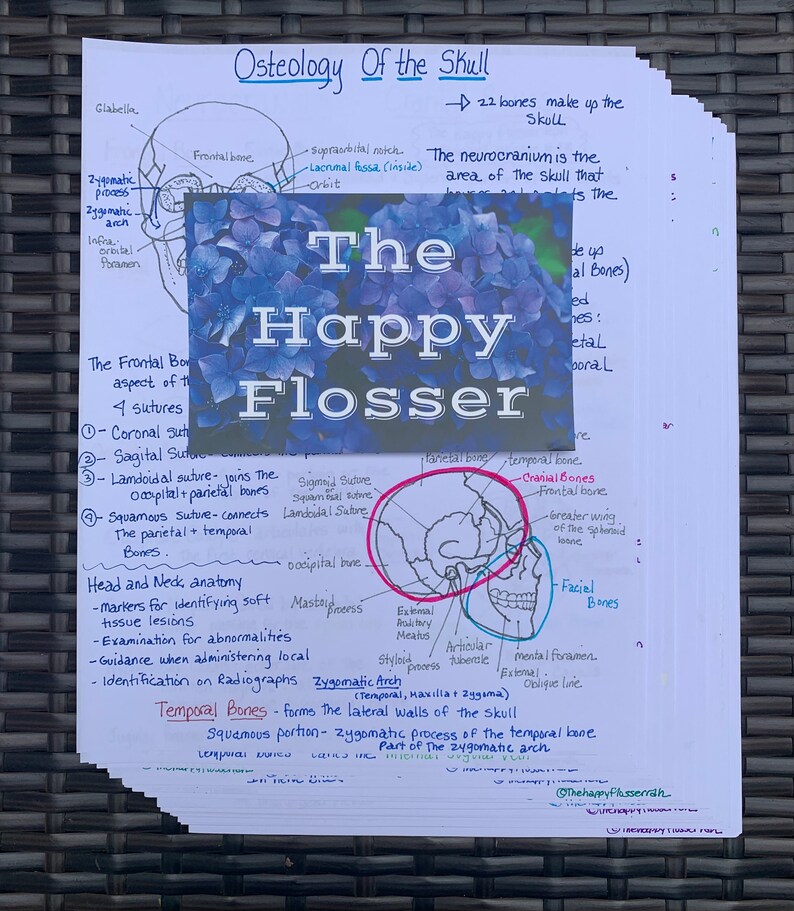 Osteology Of the Skull
22 bones make up the
Skull
Glabella
Frontal bone
supraorbital notch
Lacrimal fossa (inside)
Orbit
Zygomatic
process
Zygomatic
arch
Infra
orbital
foramen
The neurocranium is the
area of the skull that
the
up
al Bones)
The
Happy
Flosser
The Frontal Bon
aspect of th
4 sutures
1 - Coronal sut
2 - Sagital
3 - Lamdoidal suture - joins the
occipital + parietal bones
4 - Squamous suture - connects
The parietal + temporal
Bones.
Parietal bone
temporal bone
Cranial Bones
Frontal bone
Sigmoid Suture
or
Squamosal suture
Lamdoidal Suture
Greater wing
of the sphenoid
bone
occipital bone
Mastoid
process
External
Auditory
Meatus
Styloid
process
Articular
tubercle
Facial
Bones
mental foramen
External
Oblique line
Head and Neck anatomy
- markers for identifying soft
tissue lesions
- Examination for abnormalities
- Guidance when administering local
- Identification on Radiographs
Zygomatic Arch
(Temporal, Maxilla + Zygoma)
Temporal Bones - forms the lateral walls of the skull
Squamous portion - zygomatic process of the temporal bone
Part of the zygomatic arch
@Thehappyflosserrdh